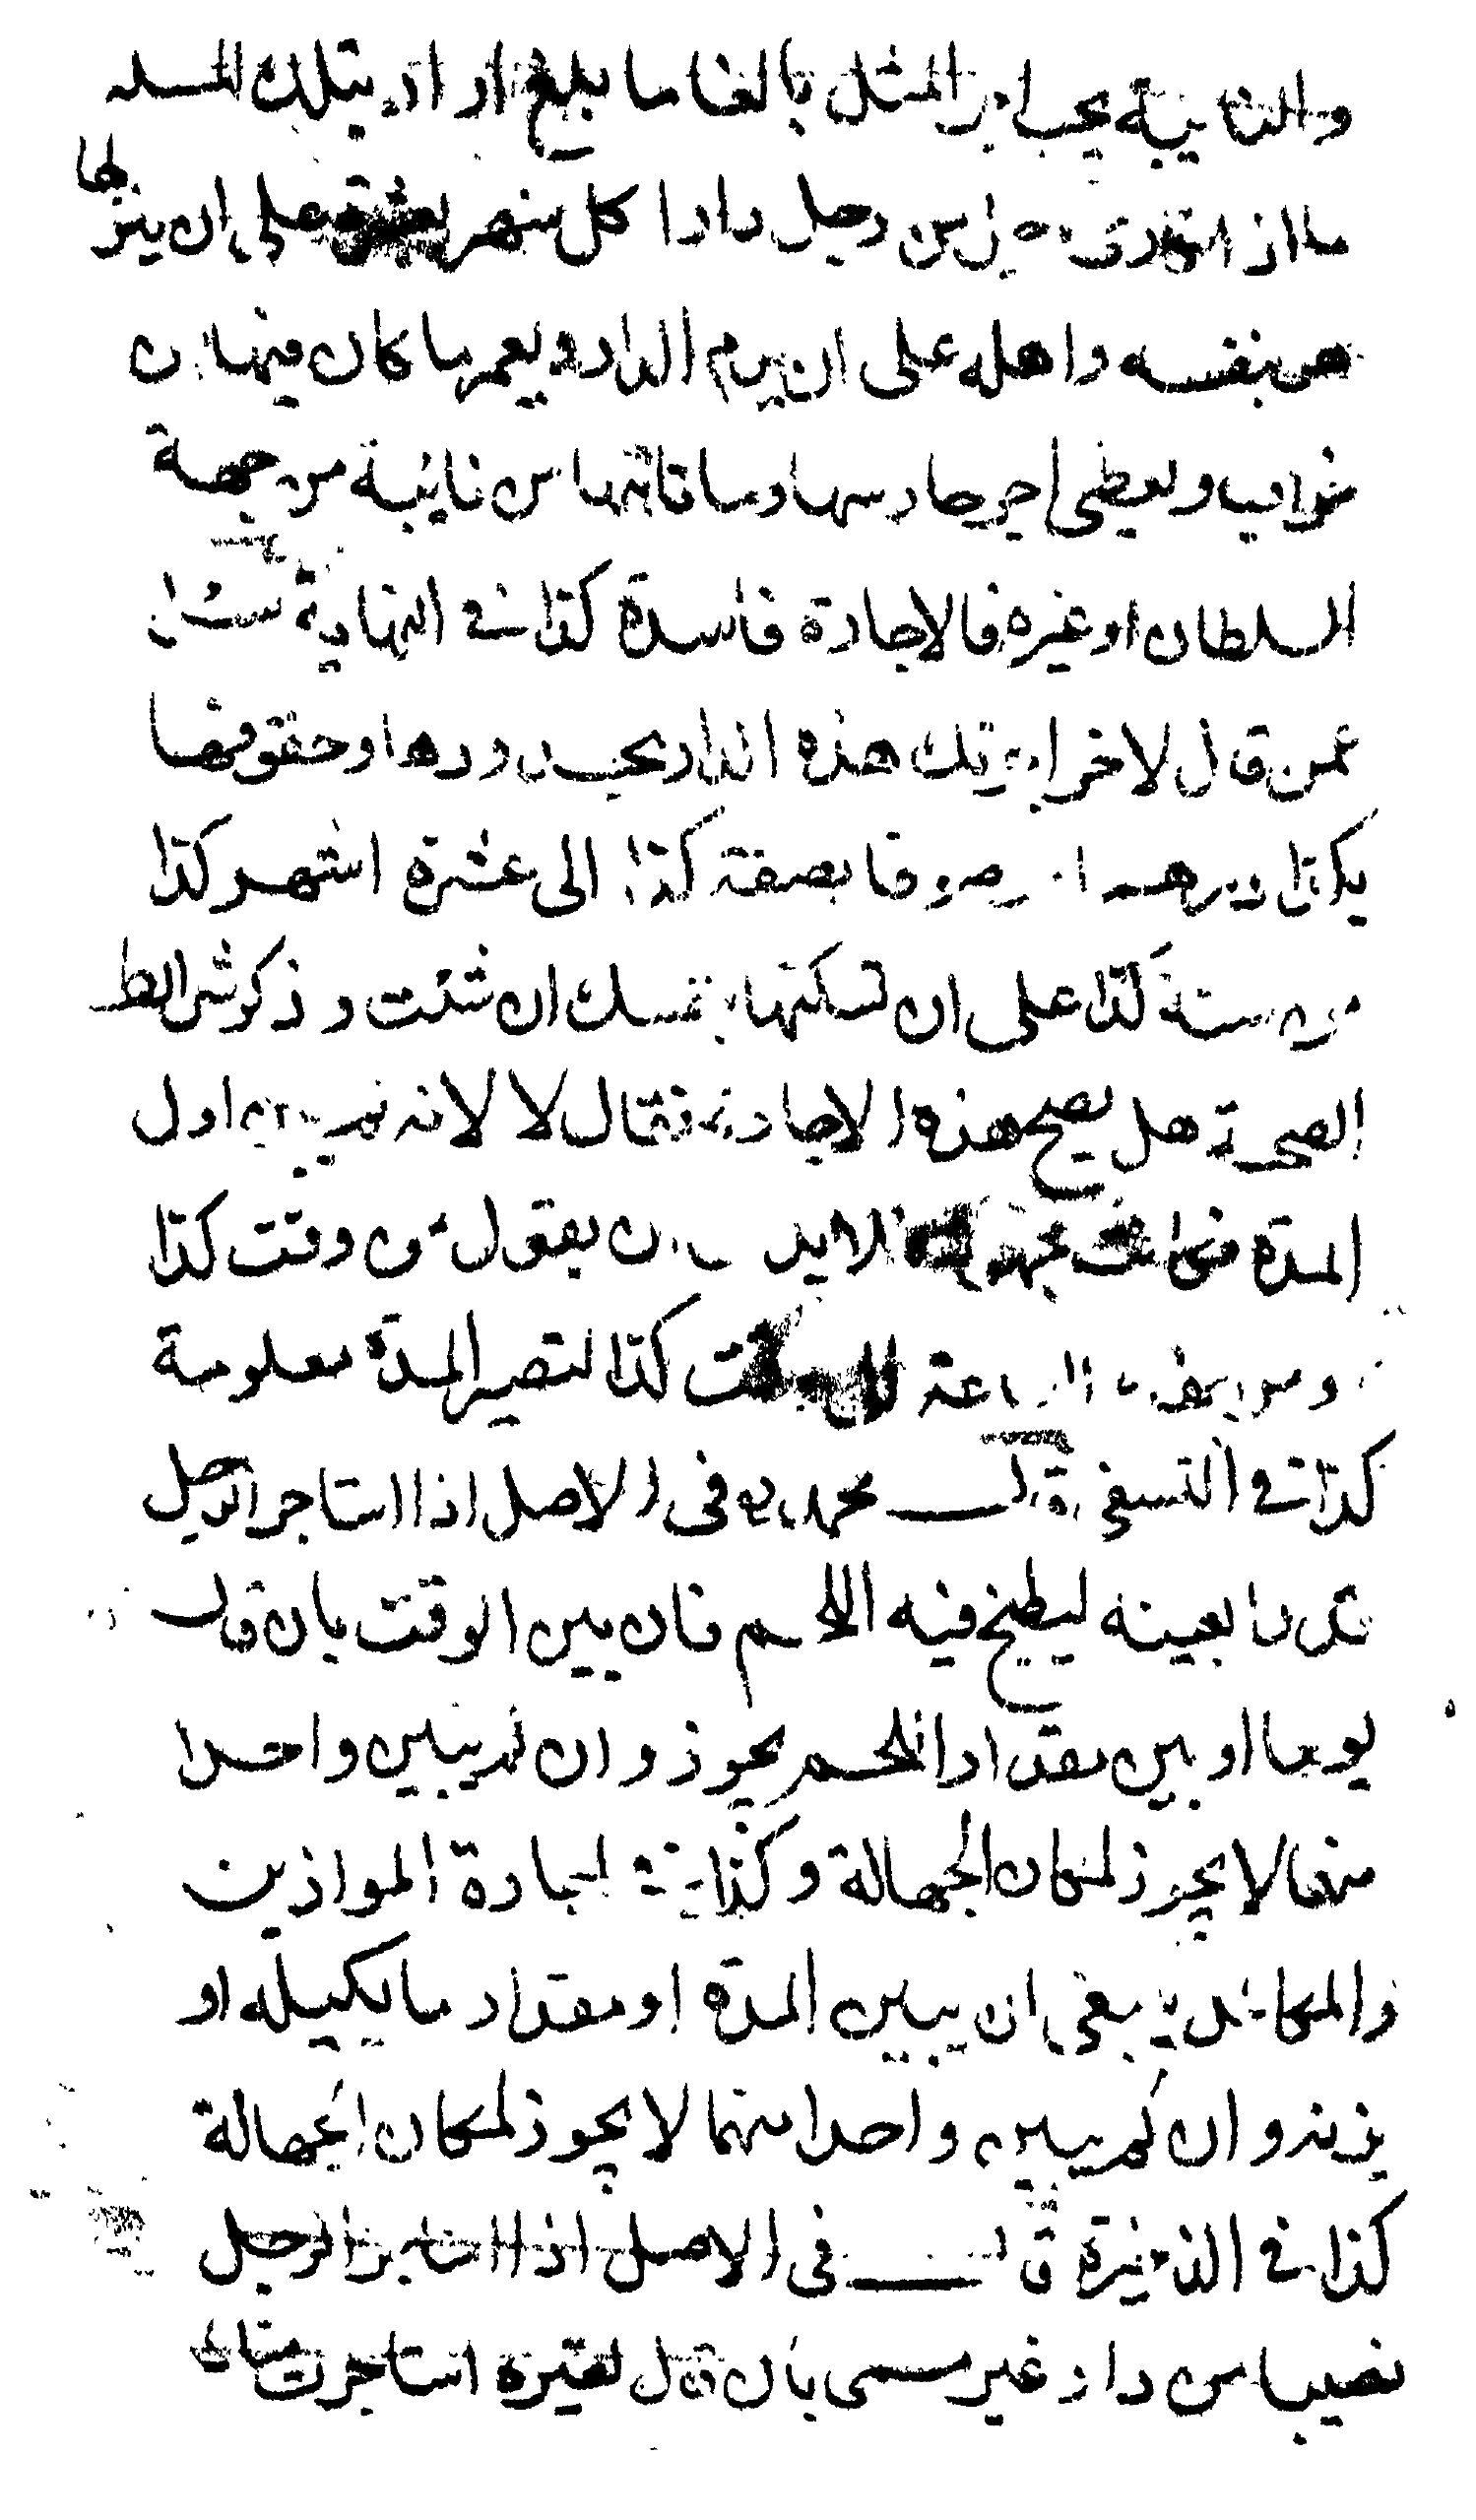 والثانية يجب اجر المثل بالغا ما بلغ اراد بتلك المسله
ما اذا استاجر رجل من رجل دارا كل شهر بعشرة على ان ينزلها
هو بنفسه واهله على ان يرم الدار ويعمر ما كان فيها من
خراب ويعطى اجر حارسها وما نابها من نائبة من جهة
السلطان او غيره فالاجارة فاسدة كذا في النهاية سئل
عمن قال لاخر اجرتك هذه الدار بحدودها وحقوقها
بكذا درهما موصوفا بصفة كذا الى عشرة اشهر كذا
من سنة كذا على ان تسكنها بنفسك ان شئت وذكر شرائط
الصحة هل يصح هذه الاجارة فقال لا لانه لم يبين اول
المدة فبقيت مجهولة لابد من ان يقول من وقت كذا
ومن هذه الساعة الى وقت كذا لتصير المدة معلومة
كذا في النسفي قال محمد رح في الاصل اذا استاجر الرجل
قدرا بعينه ليطبخ فيه اللحم فان بين الوقت بان قال
يوما او بين مقدار اللحم يجوز وان لم يبين واحدا
منهما لا يجوز لمكان الجهالة وكذا في اجارة الموازين
والمكائيل ينبغي ان يبين المدة او مقدار ما يكيله او
يزنه وان لم يبين واحدا منهما لا يجوز لمكان الجهالة
كذا في الذخيرة قال في الاصل اذا استاجر الرجل
نصيبا من دار غير مسمى بان قال لغيره استاجرت منك